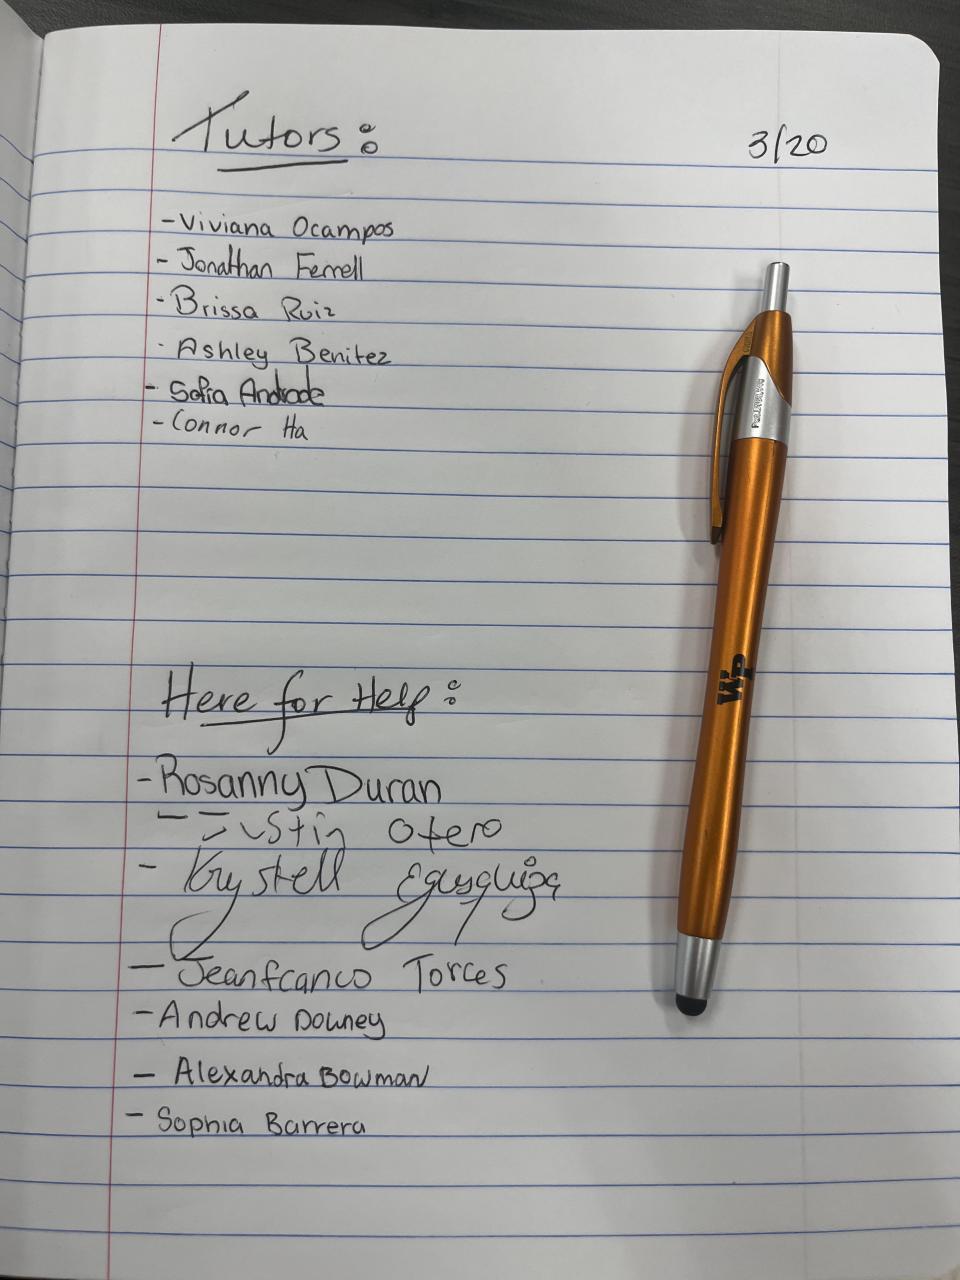 Tutors:
3/20
- Viviana Ocampos
- Jonathan Ferrell
- Brissa Ruiz
- Ashley Benitez
- Sofia Andrade
- Connor Ha
Here for Help:
- Rosanny Duran
- Justin Otero
- Krystell Egusquiza
- Jeanfranco Torres
- Andrew Downey
- Alexandra Bowman
- Sophia Barrera
WP